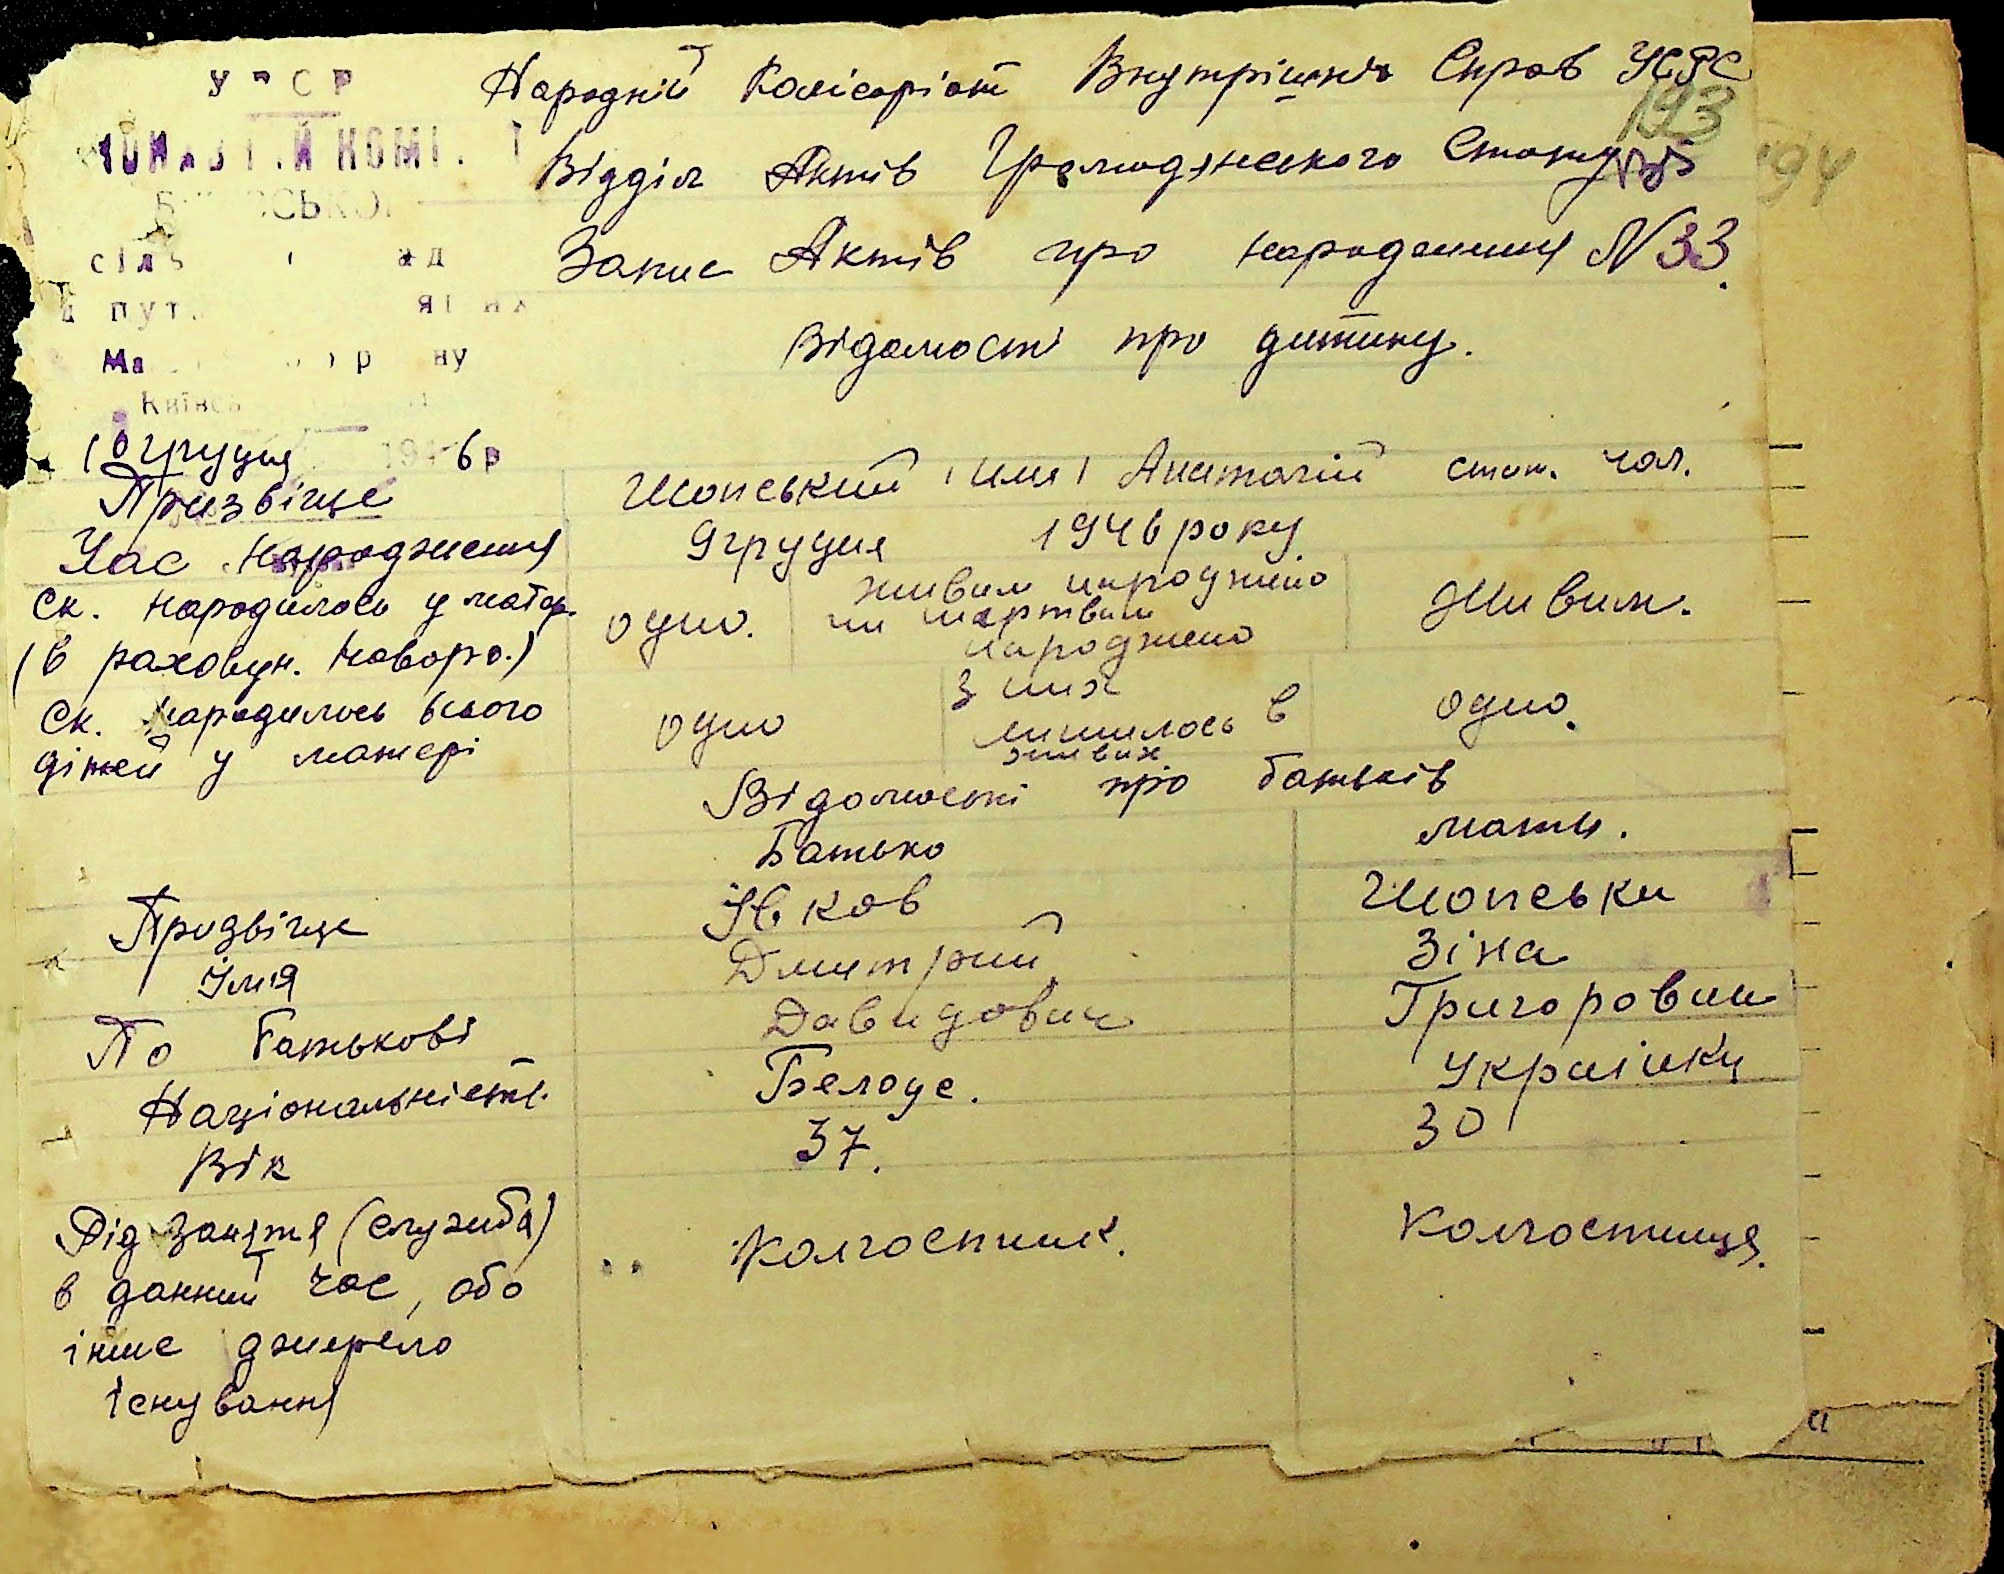 Народній Комісаріат Внутрішніх Справ УСРС
193
Відділ Актів Громадянського Стану
194
Запис Актів про народження N 33.
Відомості про дитину.
10 грудня 1946 р
Призвіще Шопський імя Анатолій стат. чол.
Час народження 9 грудня 1946 року
Ск. народилось у матер. (в раховун. новоро.) одно. живим народжено чи мертвим народжено Живим.
Ск. народилось всього дітей у матері одно з них лишилось в живих одно.
Відомості про батьків
Батько мати.
Призвіще Шопськи
Імя Дмитрий Зіна
По батькові Давидович Григоровни
Національність. Белоус. Українку
Вік 37. 30
Рід заняття (служба) в данний час, або інше джерело існування Колгоспник. Колгоспниця.